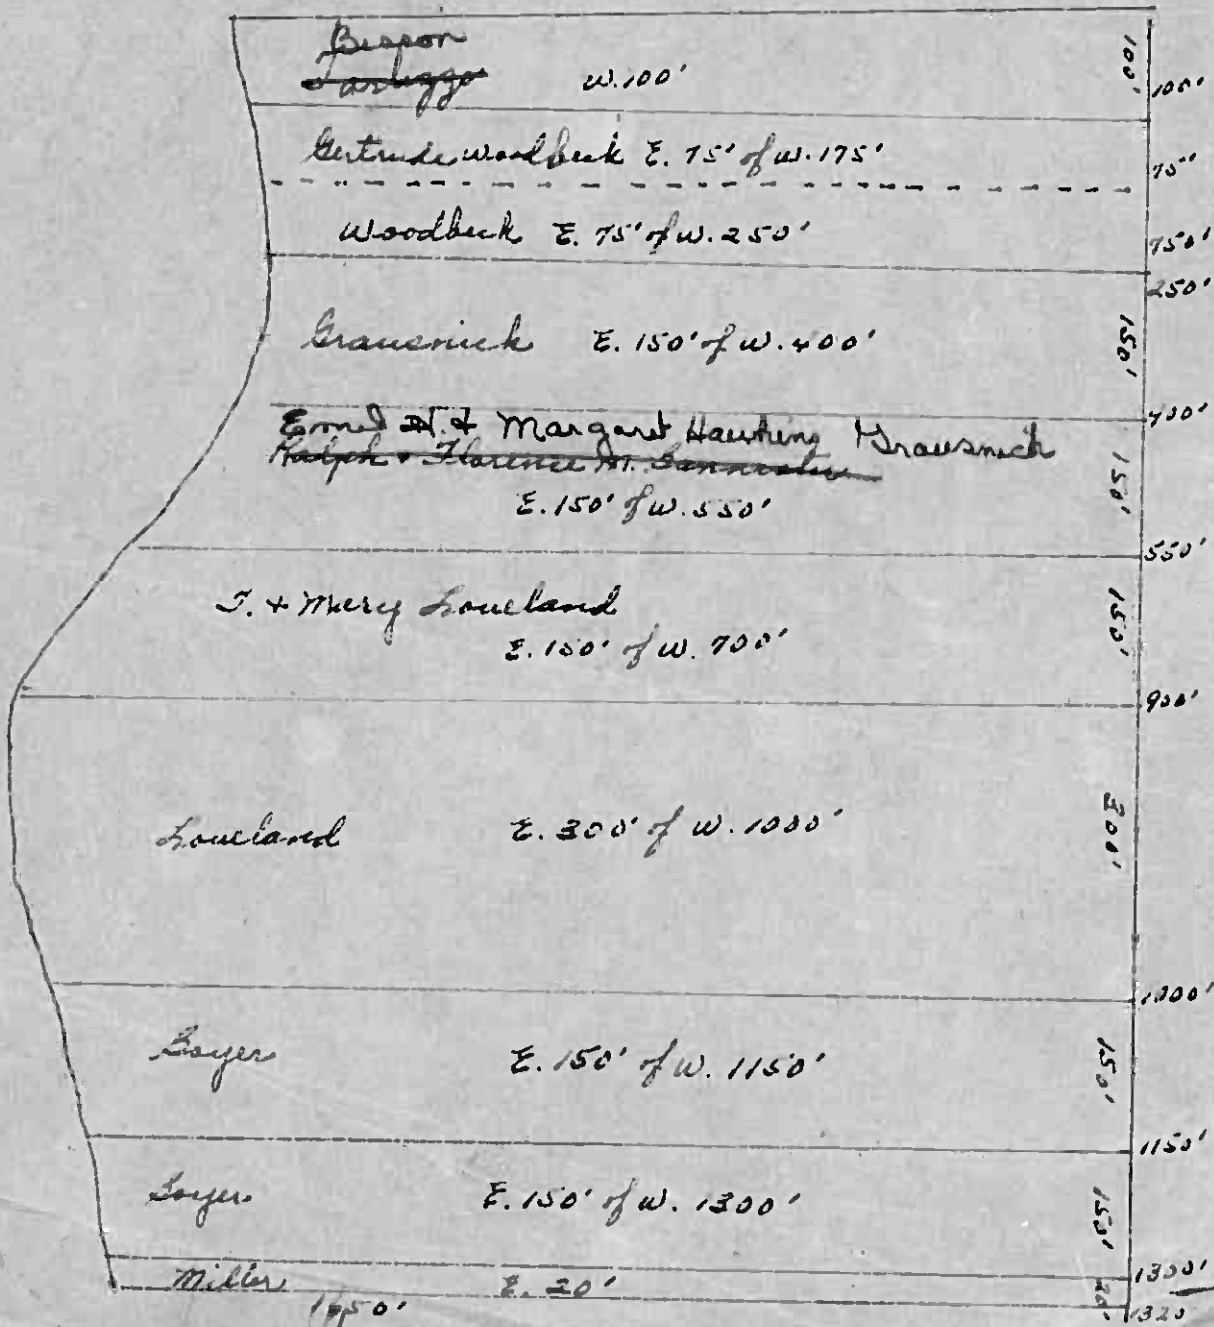 Bisson
W. 100' 100' 100'
Gertrude Woodbeck E. 75' of W. 175' 75'
Woodbeck E. 75' of W. 250' 750'
250'
Grausnick E. 150' of W. 400' 150'
400'
H. & Margaret Grausnick
Ralph & Florence M.
E. 150' of W. 550' 150'
550'
& Mary Loveland 150'
E. 150' of W. 700'
900'
Loveland E. 300' of W. 1000' 300'
1000'
Boyer E. 150' of W. 1150' 150'
1150'
Boyer E. 150' of W. 1300' 150'
1300'
Miller E. 20' 20'
1650' 1320